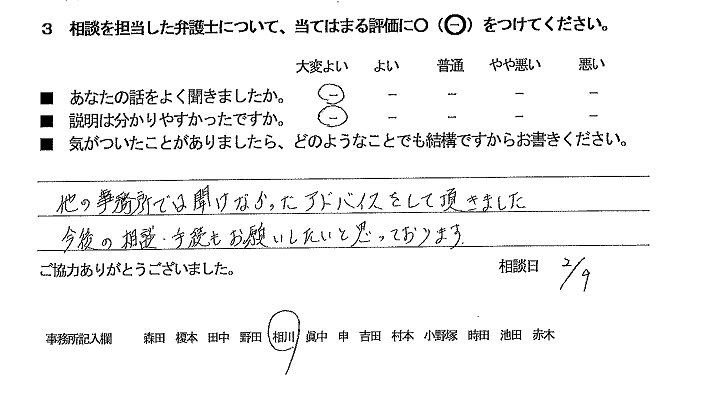 3 相談を担当した弁護士について、当てはまる評価に○（㊀）をつけてください。
大変よい よい 普通 やや悪い 悪い
■ あなたの話をよく聞きましたか。 － － － － －
■ 説明は分かりやすかったですか。 － － － － －
■ 気がついたことがありましたら、どのようなことでも結構ですからお書きください。
他の事務所では聞けなかったアドバイスをして頂きました
今後の相談・手後もお願いしたいと思っております
ご協力ありがとうございました。 相談日 2/9
事務所記入欄 森田 榎本 田中 野田 相川 眞中 申 吉田 村本 小野塚 時田 池田 赤木